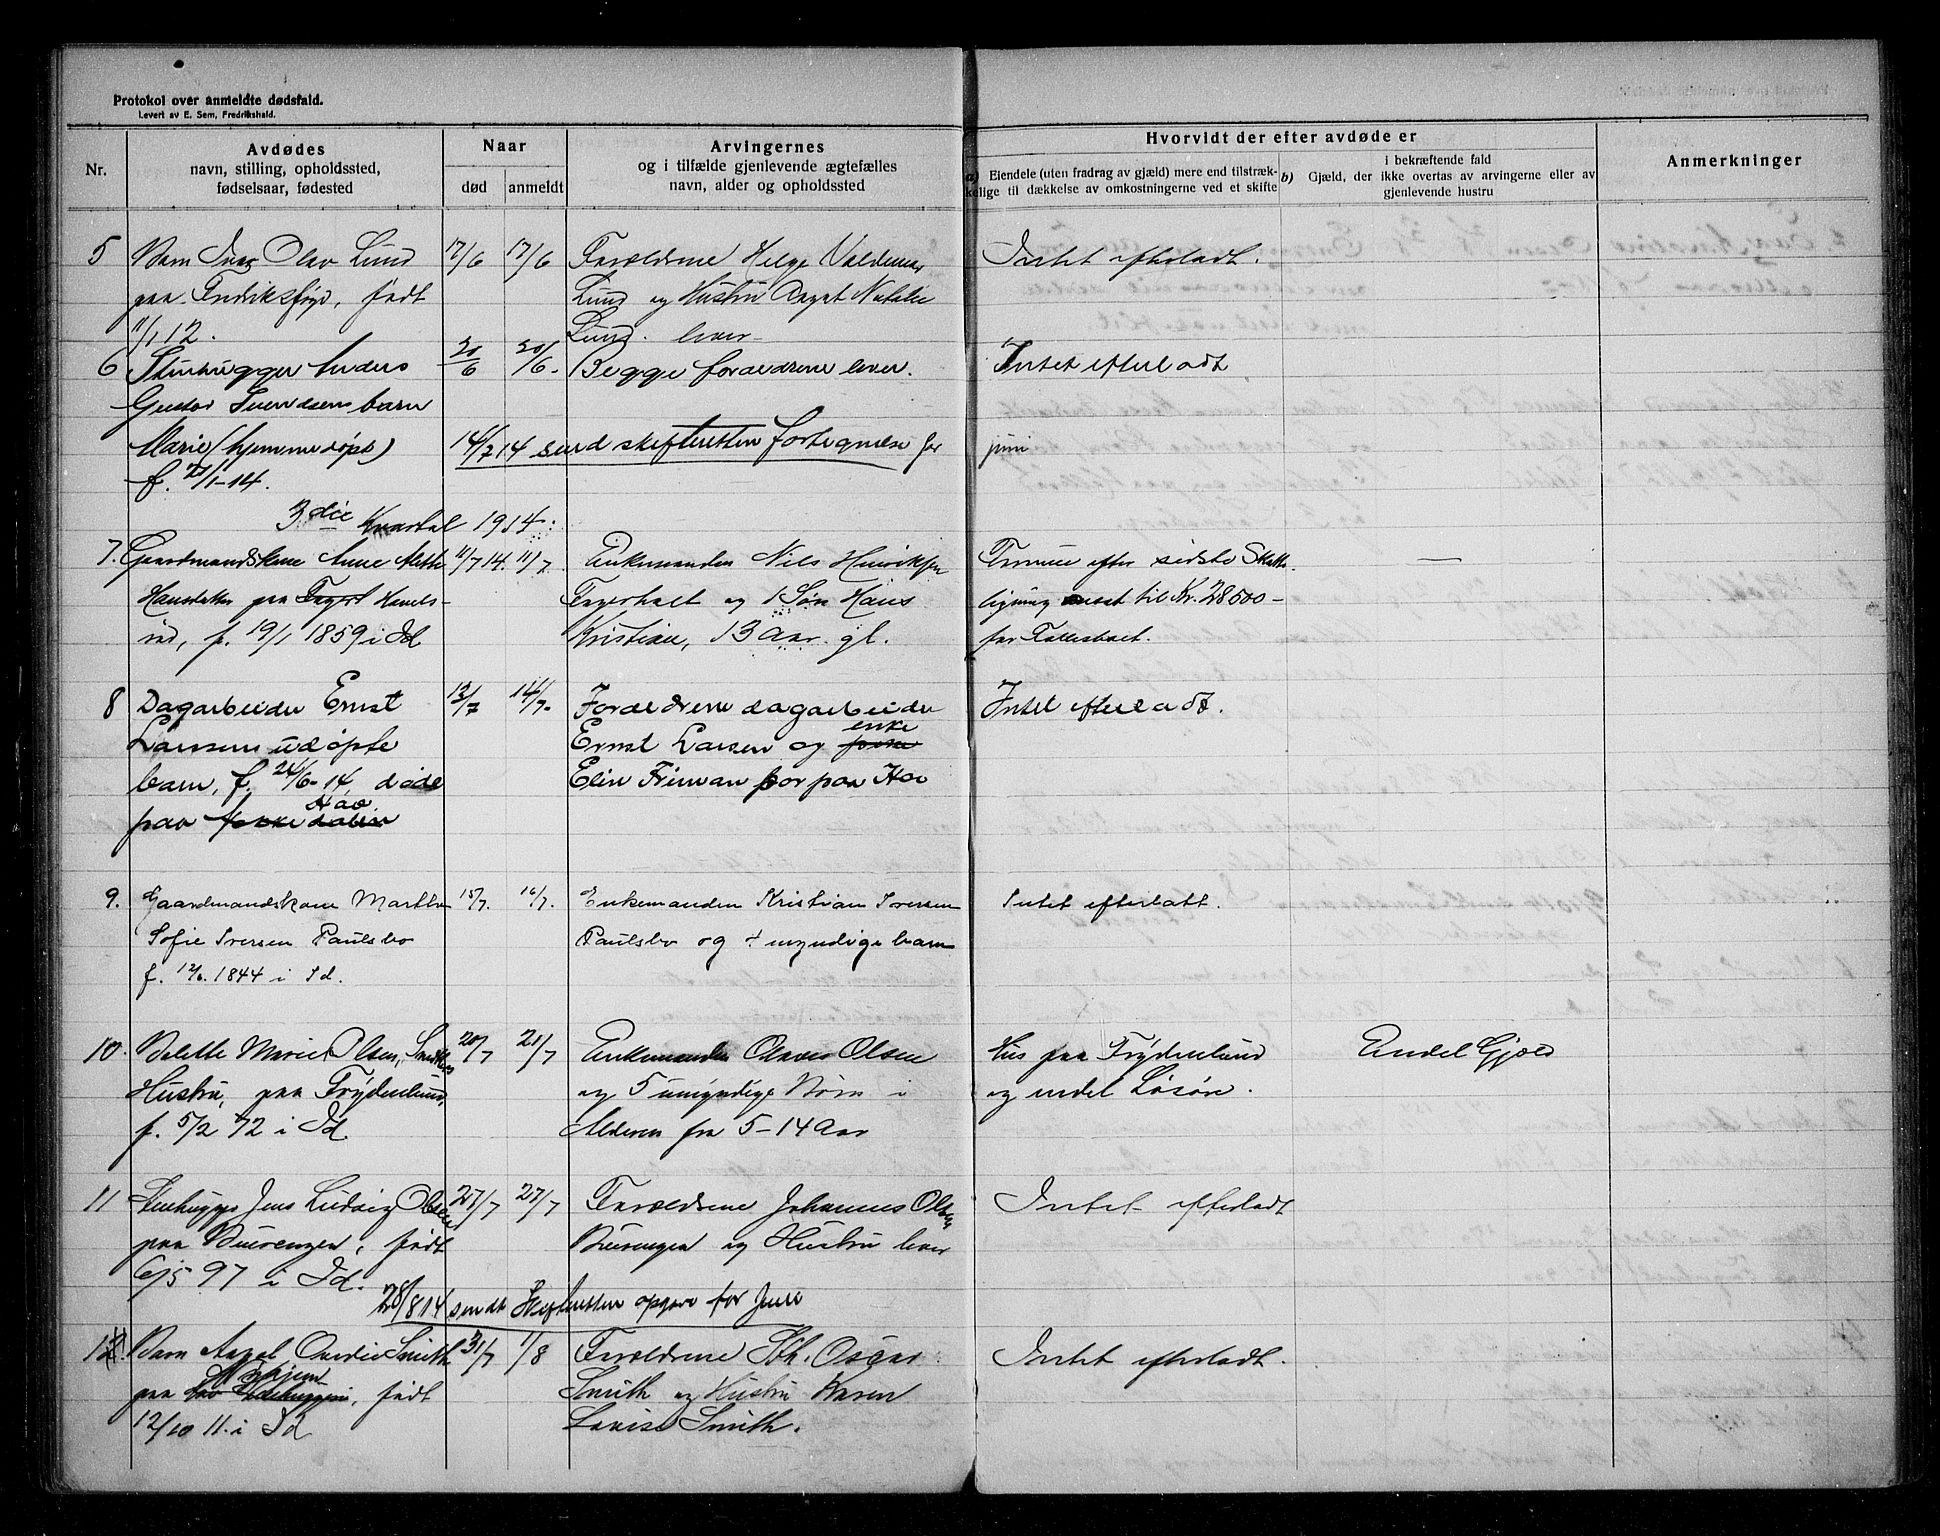 Protokol over anmeldte dødsfald.
Levert av E. Sem, Fredrikshald.
Nr.
Avdødes
navn, stilling, opholdssted,
fødselsaar, fødested
Naar
død
anmeldt
Arvingernes
og i tilfælde gjenlevende ægtefælles
navn, alder og opholdssted
Hvorvidt der efter avdøde er
a) Eiendele (uten fradrag av gjæld) mere end tilstræk-
kelige til dækkelse av omkostningerne ved et skifte
b) Gjæld, der
i bekræftende fald
ikke overtas av arvingerne eller av
gjenlevende hustru
Anmerkninger
5 Barn Ivar Olav Lund 17/6 17/6 Forældrene Helge Valdemar Intet efterladt.
paa Fredriksføyd, født Lund og Hustru Dagat Natalie
11/1 12. Lund. lever
6 Stenhugger Anders 20/6 20/6- Begge forældrene lever. Intet efterladt
Gustav Svendsens barn
Marie (hjemmedøpt) 14/7 14 send skifteretten fortegnelse for juni
f. 21/1-14.
3die Kvartal 1914:
7. Gaardmandskone Anne Mette 11/7 14. 11/7. Enkemanden Nils Henriksen Formue efter sidste Skatte- —
Hansdatter paa Fagerh Hovels- Fagerholt og 1 Søn Hans ligning ansat til Kr. 28500-
rød, f. 19/1 1859 i Id Kristian, 13 Aar gl. for Fællesboet.
8 Dagarbeider Ernst 13/7 14/7- Forældrene dagarbeider Intet efterladt.
Larsens udøpte Ernst Larsen og enke
barn, f. 24/6-14, døde Elin Friman bor paa Hov
paa Hov
9. Gaardmandskone Martha 15/7. 16/7. Enkemanden Kristian Iversen Intet efterlatt.
Sofie Iversen Paulsbo Paulsbo og 4 myndige barn
f. 12/6. 1844 i Id.
10. Bolette Marie Olsen, Smeds 20/7 21/7 Enkemanden Olaves Olsen Hus paa Frydenlund Endel Gjæld
Hustru, paa Frydenlund, og 5 umyndige Børn i og endel Løsøre.
f. 5/2 72 i Id. Alderen fra 5-14 Aar
11 Stenhugger Jens Ludvig Olsen 27/7 27/7 Forældrene Johannes Olsen Intet efterladt
paa Buerengen, født Buerengen og Hustru lever
6/5 97 i Id.
28/8 14 sendt Skifteretten opgave for Juli
12. Barn Aagot Ovedie Smith 31/7 1/8 Forældrene Sth. Oscar Intet efterladt.
paa Askjem, født Smith og Hustru Karen
12/10 11. i Id Lovise Smith.